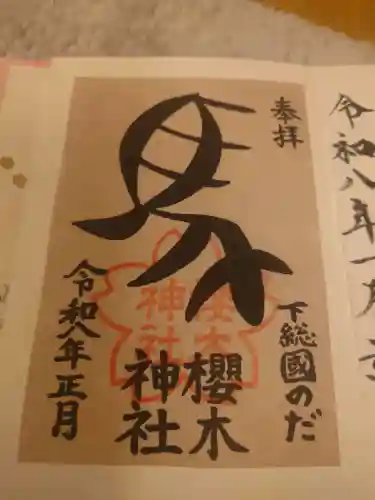 奉拝
下総國のだ
櫻木
神社
櫻木
神社
令和八年正月
令和八年一月